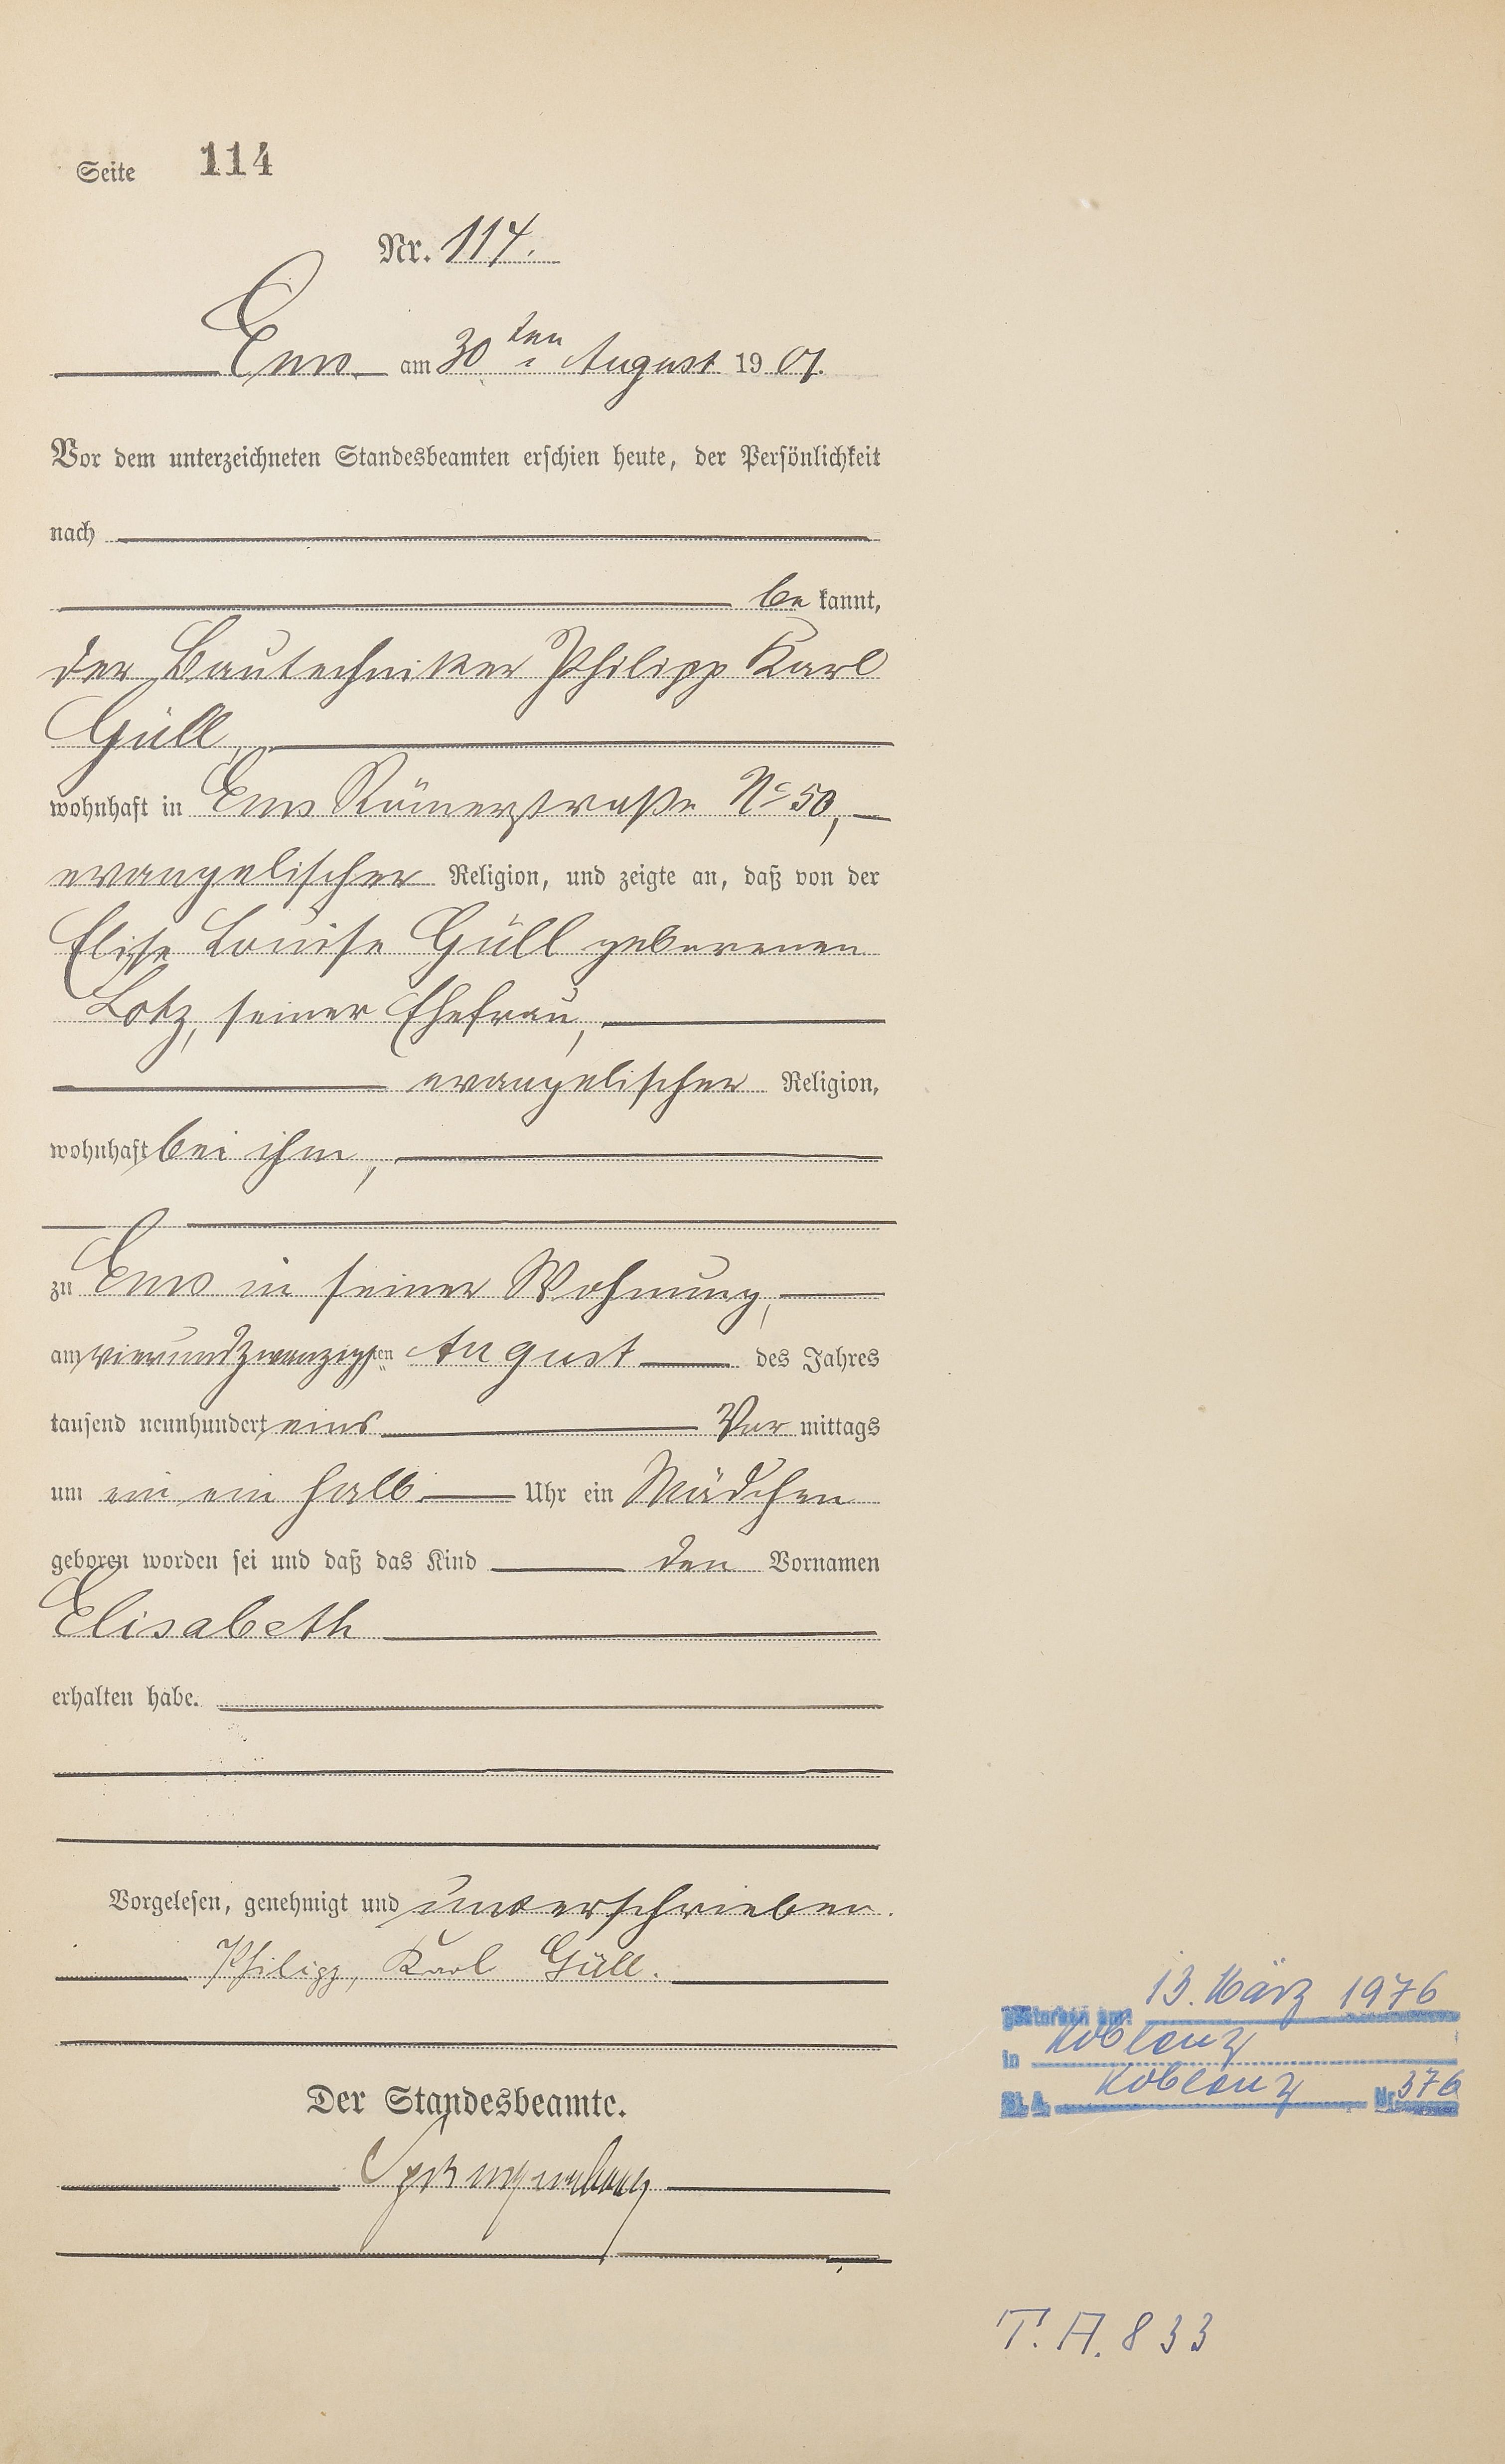 Seite 114
Nr. 114.
Ems am 30ten August 1901.
Vor dem unterzeichneten Standesbeamten erschien heute, der Persönlichkeit
nach
be kannt,
der Bautechniker Philipp Karl
Güll,
wohnhaft in Ems Römerstraße No 50,
evangelischer Religion, und zeigte an, daß von der
Elise Louise Güll geborenen
Lotz, seiner Ehefrau,
evangelischer Religion,
wohnhaft bei ihm,
zu Ems in seiner Wohnung,
am vierundzwanzigsten August des Jahres
tausend neunhundert eins Vor mittags
um ein ein halb Uhr ein Mädchen
geboren worden sei und daß das Kind den Vornamen
Elisabeth
erhalten habe.
Vorgelesen, genehmigt und unterschrieben.
Philipp, Karl Güll.
Der Standesbeamte.
gestorben am: 13. März 1976
in Koblenz
St. A. Koblenz Nr. 376
T. A. 833